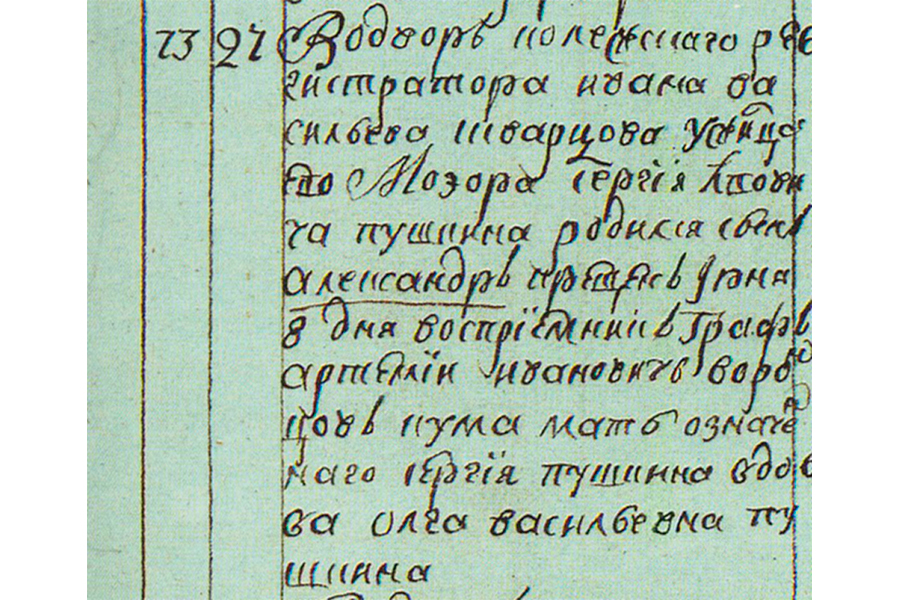 73 27 Водворѣ колежскаго рег
истратора ивана ва
сильева шварцова Ужильца
ево Моэора Сергія Львови
ча пушкина родился сынъ
александръ крещенъ Іюня
8 дня воспріемникъ Графъ
артемій ивановичъ ворон
цовъ кума мать означен
наго сергія пушкина вдов
ва олга васильевна пу
шкина